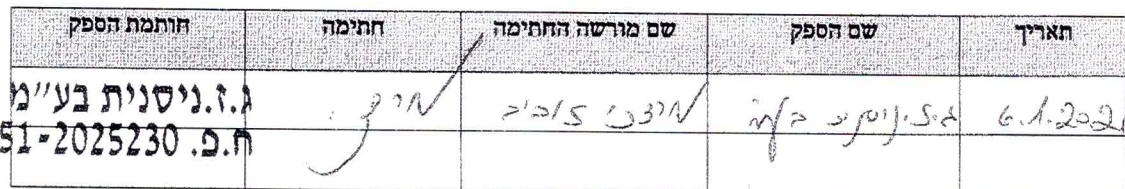 תאריך שם הספק שם מורשה החתימה חתימה חותמת הספק
6.1.202 ג.ז. ניסנית בע"מ
ג.ז.ניסנית בע"מ
ח.פ. 51-2025230